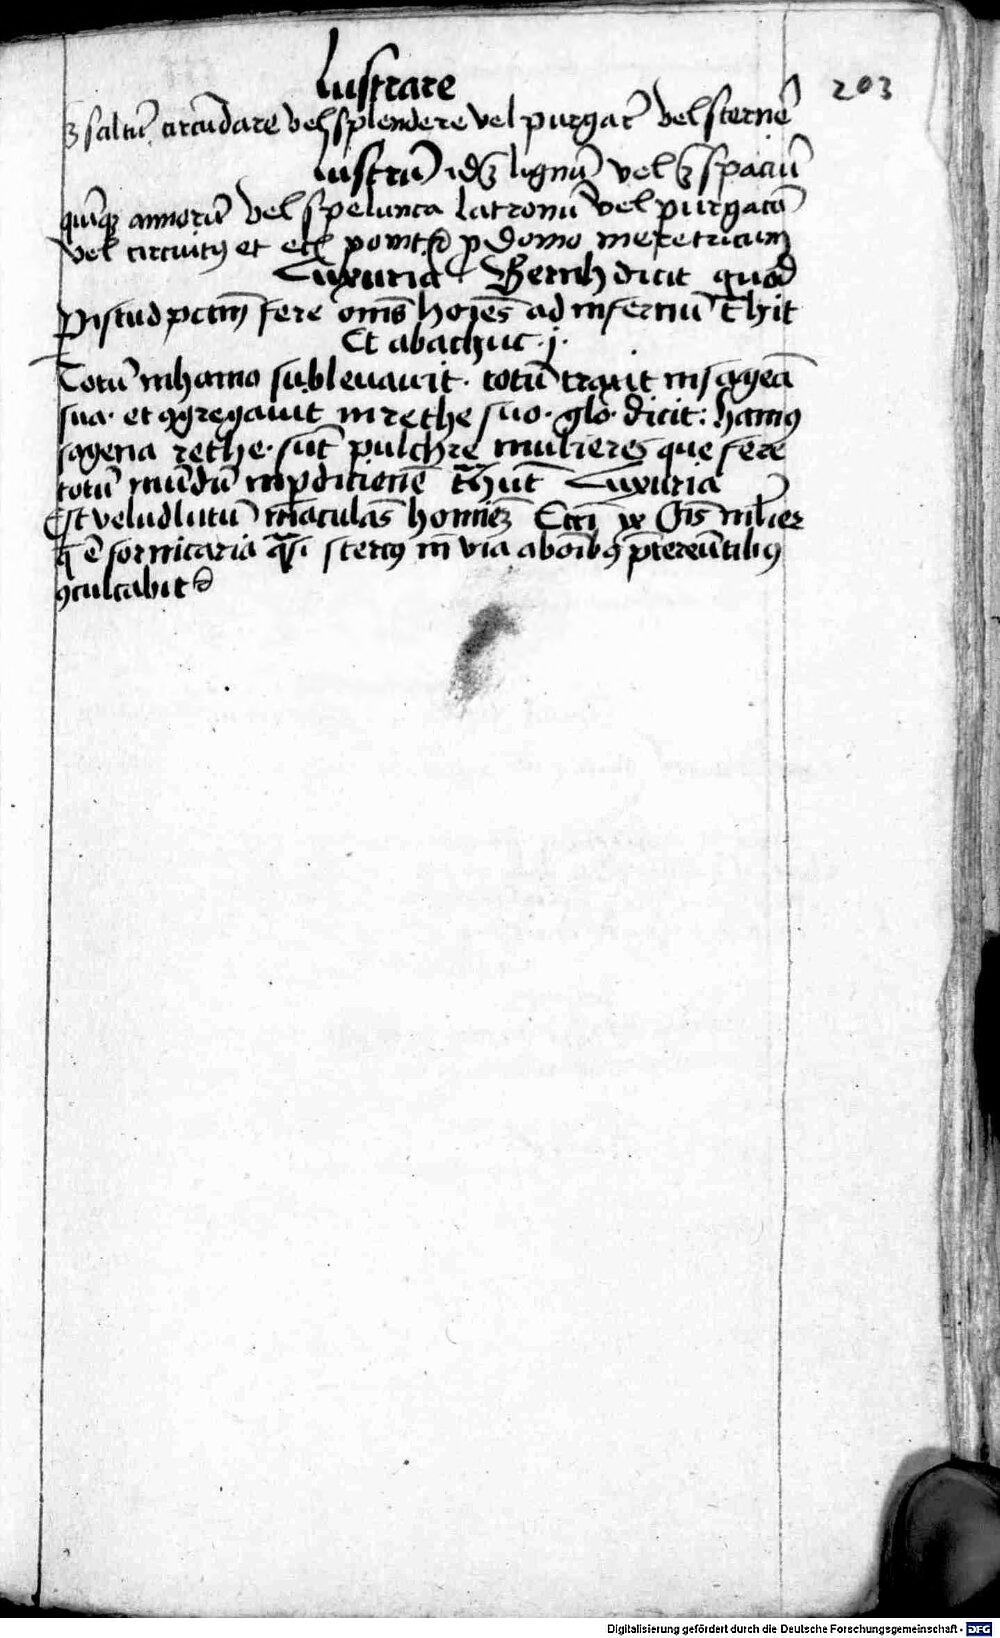 203
Lustrare
ꝫ saltū circūdare vel splendere vel purgar̄ vel sternē
Lustrū idꝫ lignū vel ꝫ spaciū
quīqꝫ annorū vel spelunca latronū vel purgacō
vel circuitꝰ et ecī ponit᷑ p domo meretricum
Luxuria Bernh dicit quod
ꝑ istud pctm̄ fere om̄s hoīes ad infernū t̄hit
Et abachuc · j ·
Totū in hamo subleuauit · totū traxit in sagena
sua · et ꝯgregauit in rethe suo · glo · dicit : hamꝰ
sagena rethe · sūt pulchre mulieres que fere
totū mūdū in ꝑditionē t̄hūt Luxuria
Est velud lutū maculās hominē Ecci ix Oīs mlier
q̄ ē fornicaria q̄si stercꝰ in via ab oībꝰ p̄tereūtibꝰ
ꝯculcabit᷑
Digitalisierung gefördert durch die Deutsche Forschungsgemeinschaft - DFG